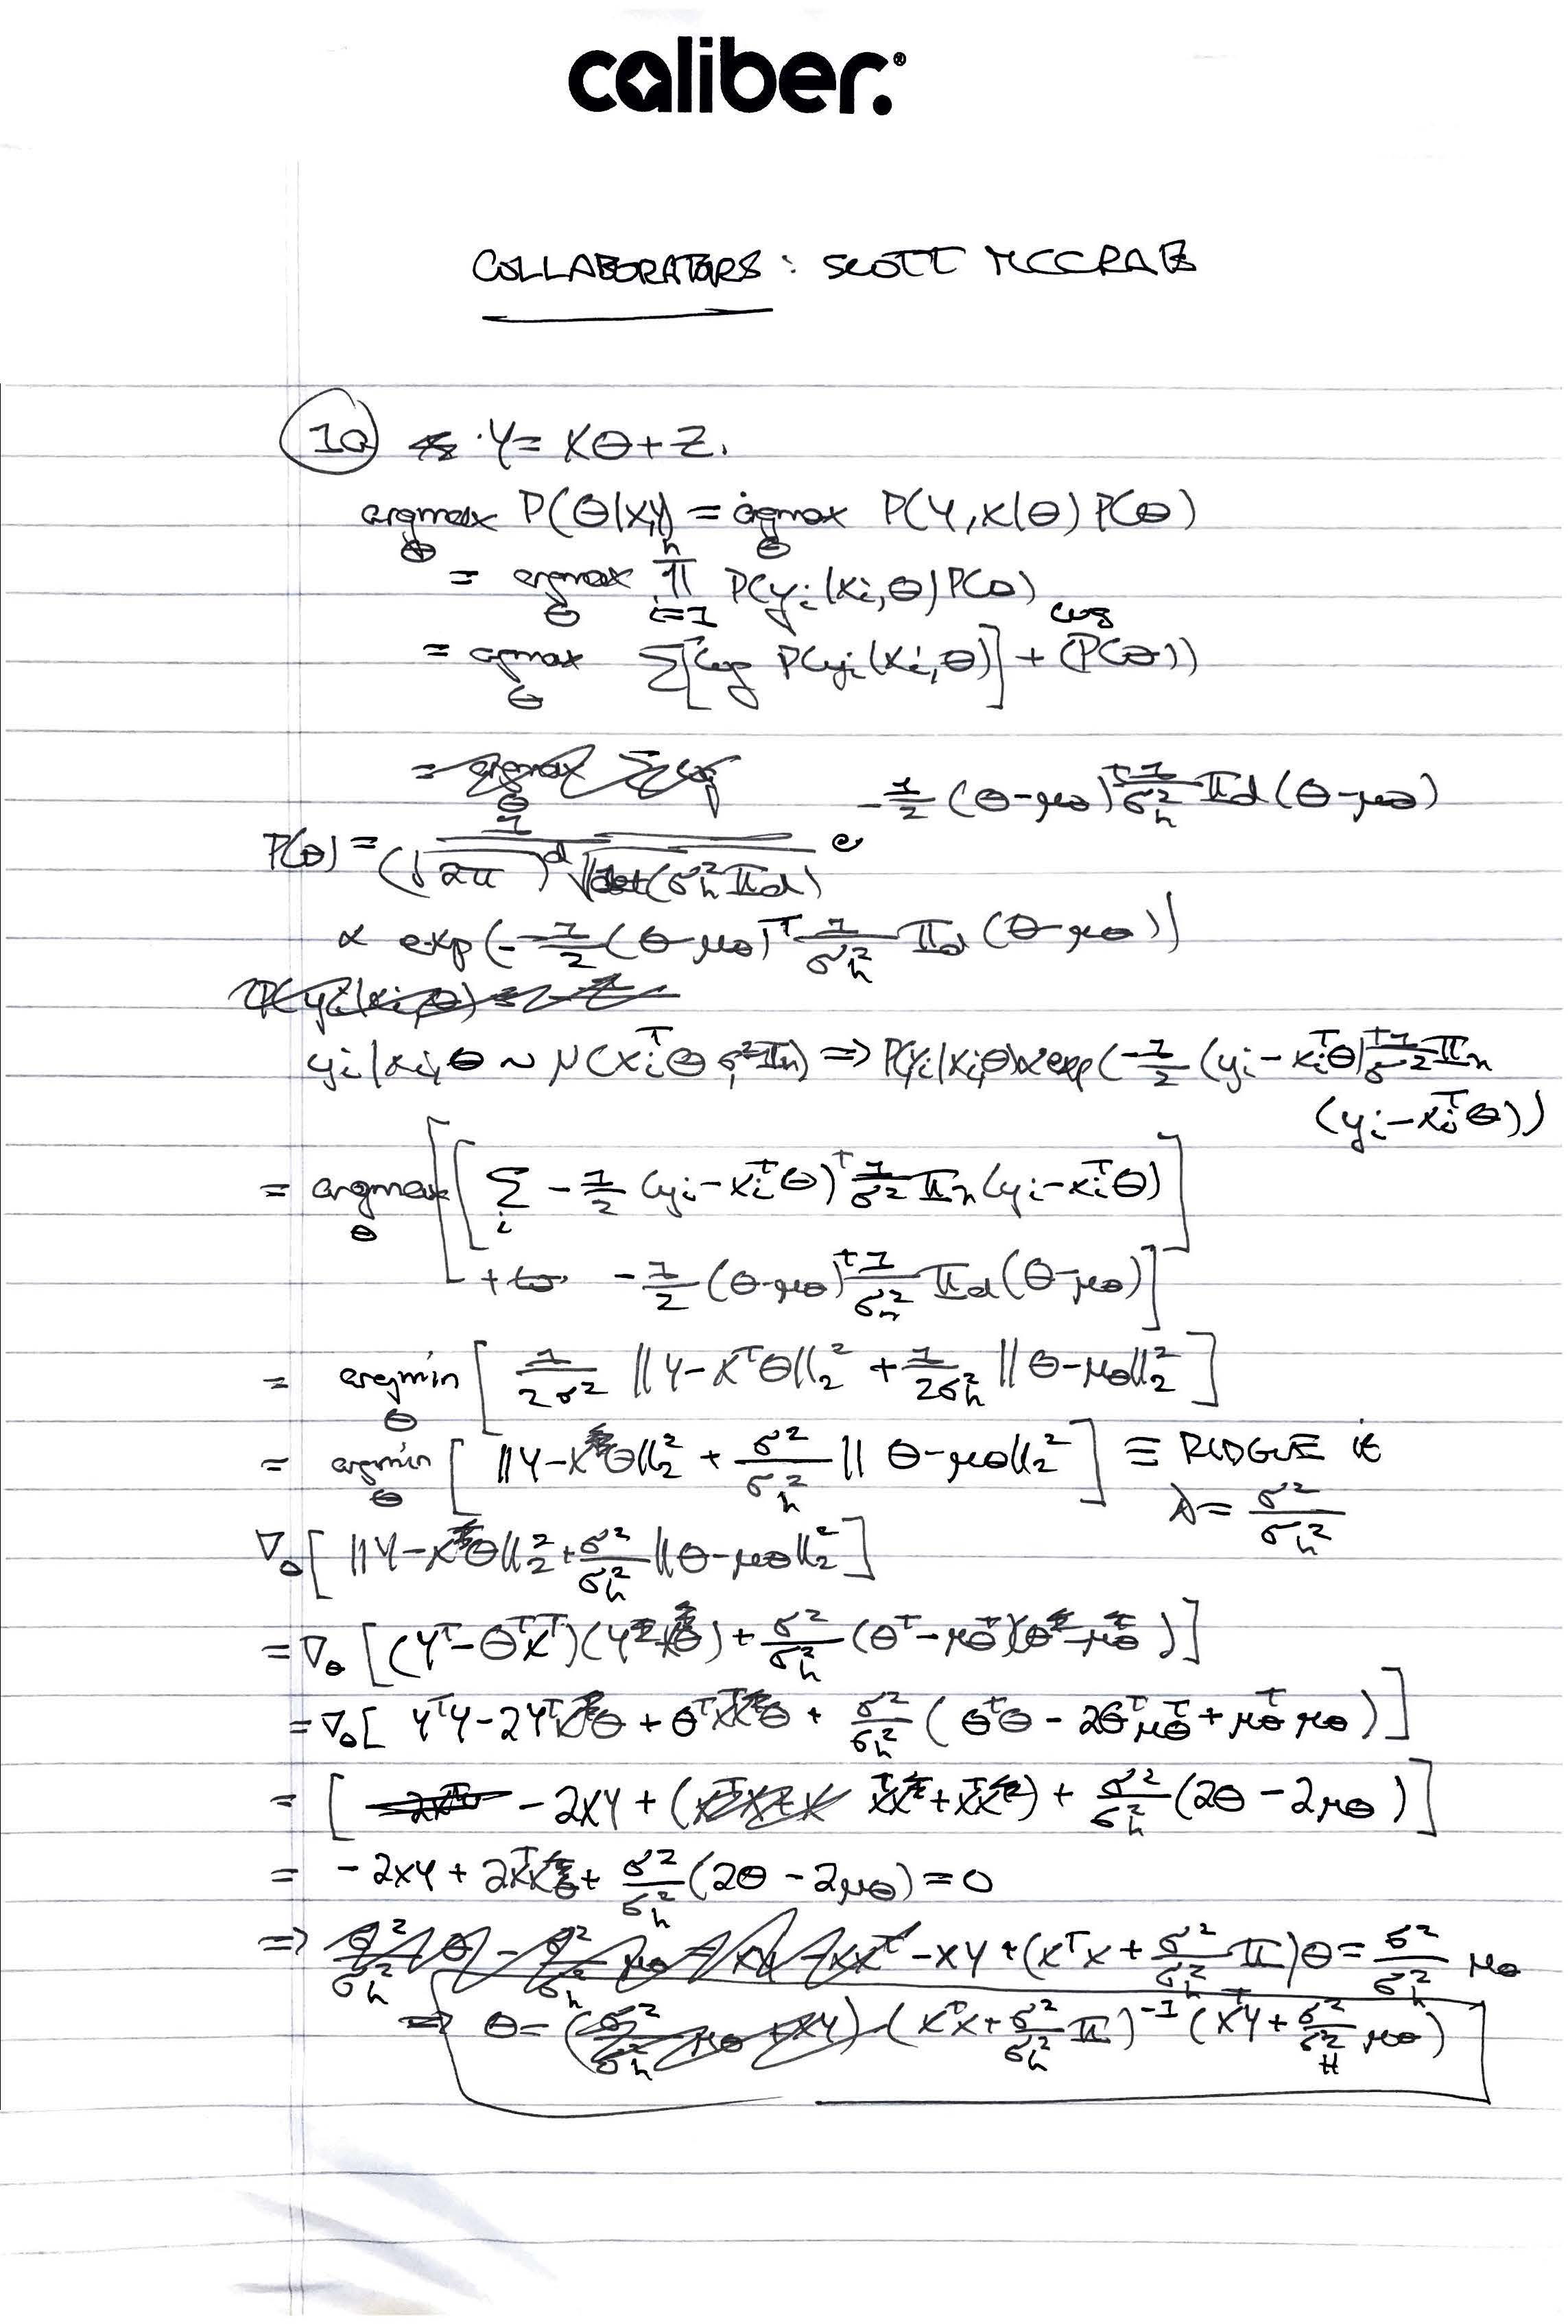 caliber.®
COLLABORATORS: SCOTT MCCRAE
1a Y = Xθ + Z.
argmax_θ P(θ|X,Y) = argmax_θ P(Y,X|θ) P(θ)
= argmax_θ ∏_{i=1}^n P(y_i|x_i,θ) P(θ)
= argmax_θ Σ[log P(y_i|x_i,θ)] + log (P(θ))
P(θ) = 1/((√2π)^d √det(σ_h² 𝕀d)) e^{-1/2 (θ-μθ)^T 1/σ_h² 𝕀d (θ-μθ)}
∝ exp(-1/2 (θ-μθ)^T 1/σ_h² 𝕀d (θ-μθ))
y_i|x_i,θ ~ N(x_i^Tθ, σ²𝕀n) ⇒ P(y_i|x_i,θ) ∝ exp(-1/2 (y_i - x_i^Tθ)^T 1/σ² 𝕀n
(y_i - x_i^Tθ))
= argmax_θ [[Σ_i -1/2 (y_i - x_i^Tθ)^T 1/σ² 𝕀n (y_i - x_i^Tθ)]
+ -1/2 (θ-μθ)^T 1/σ_h² 𝕀d (θ-μθ)]
= argmin_θ [1/2σ² ||Y - X^Tθ||_2² + 1/2σ_h² ||θ-μθ||_2²]
= argmin_θ [||Y - Xθ||_2² + σ²/σ_h² ||θ-μθ||_2²] ≡ RIDGE if
λ = σ²/σ_h²
∇_θ [||Y - Xθ||_2² + σ²/σ_h² ||θ-μθ||_2²]
= ∇_θ [(Y^T - θ^TX^T)(Y - Xθ) + σ²/σ_h² (θ^T - μθ^T)(θ - μθ)]
= ∇_θ [Y^TY - 2Y^TXθ + θ^TX^TXθ + σ²/σ_h² (θ^Tθ - 2θ^Tμθ^T + μθ^Tμθ)]
= [-2XY + (X^TX + X^TX) + σ²/σ_h² (2θ - 2μθ)]
= -2XY + 2X^TXθ + σ²/σ_h² (2θ - 2μθ) = 0
⇒ -XY + (X^TX + σ²/σ_h² 𝕀)θ = σ²/σ_h² μθ
⇒ θ = (X^TX + σ²/σ_h² 𝕀)^{-1} (X^TY + σ²/σ_H² μθ)